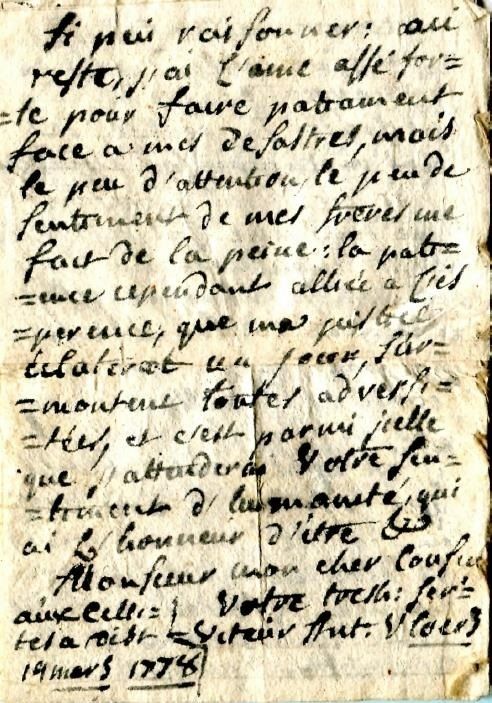 si peu raisonner: au
reste, j'ai l'ame assé for=
=te pour faire patiament
face a mes desastres, mais
le peu d'attention, le peu de
sentiment de mes freres me
fait de la peine: la pati=
=ence cependant alliée a l'es
=perence, que ma justice
éclaterat un jour, sur=
=montent toutes adversi=
=tées, et c'est parmi icelle
que j'attenderai Votre sen=
=timent d'humanité, qui
ai l'honneur d'être &
Monsieur mon cher Cousin
aux Celli= Votre tresh: ser=
tes a Dist =Viteur Ant. Vloers
19 mars 1778